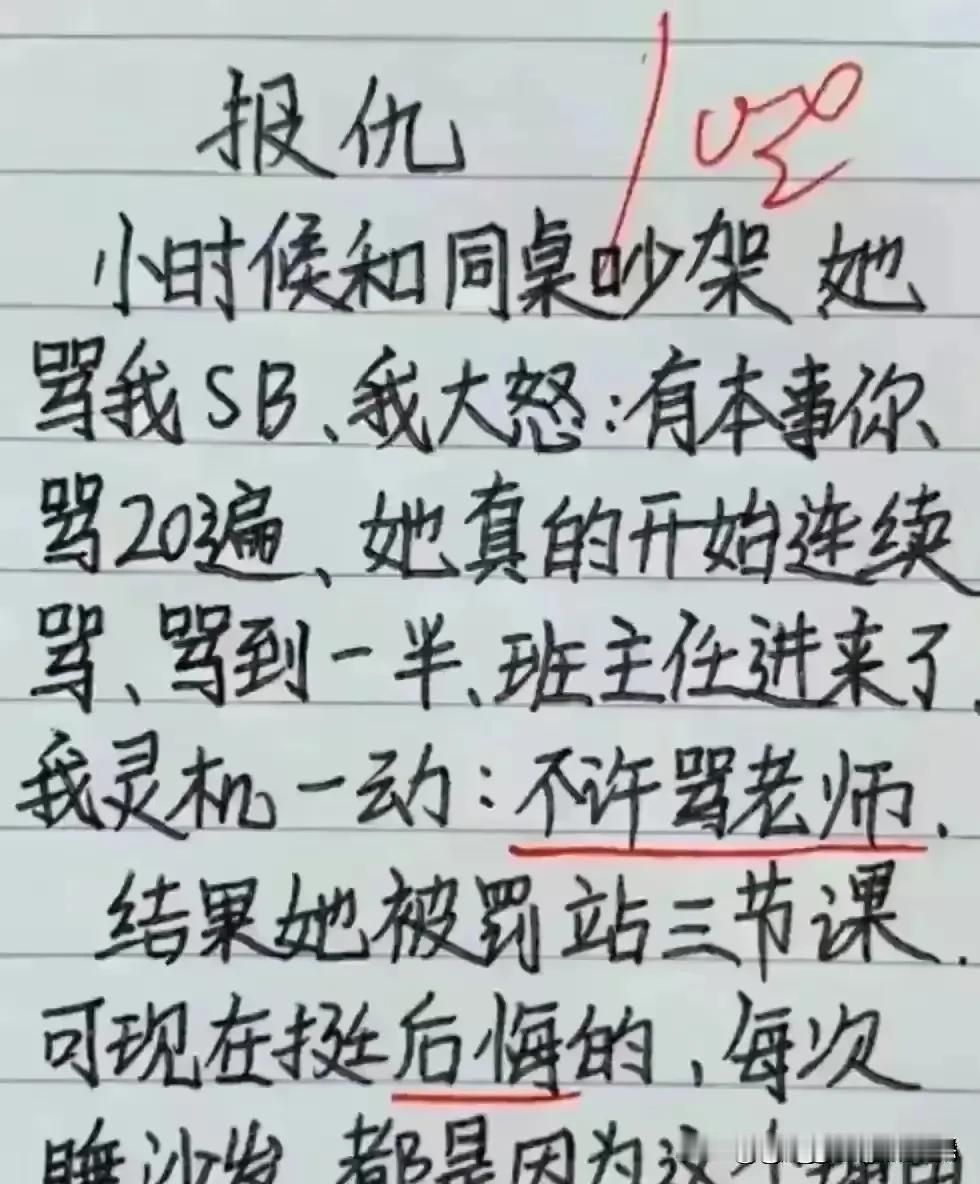 报仇
小时候和同桌吵架 她
骂我SB、我大怒:有本事你、
骂20遍、她真的开始连续
骂、骂到一半、班主任进来了、
我灵机一动:不许骂老师.
结果她被罚站三节课.
可现在挺后悔的、每次
睡沙发 都是因为这个